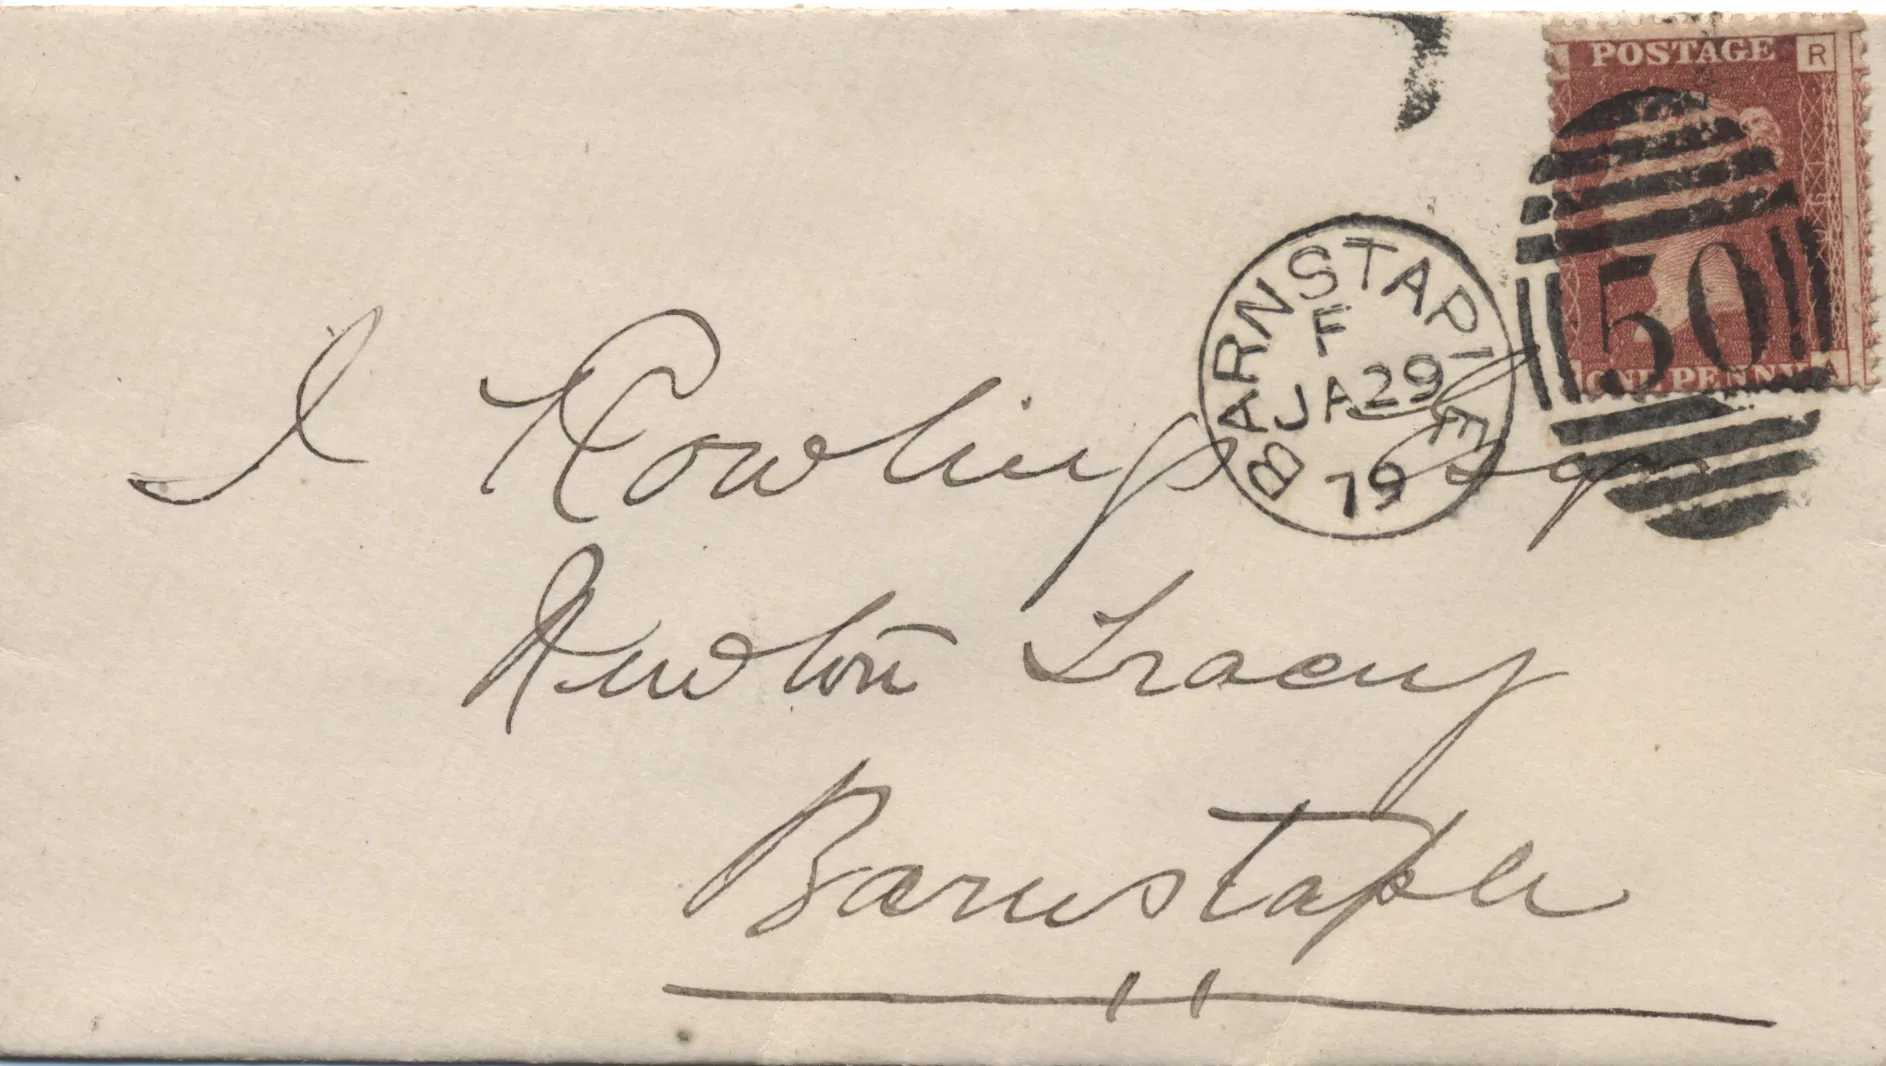 POSTAGE
R
50
ONE PENNY
A
BARNSTAPLE
F
JA 29
79
J Rowling Esqr
Newton Tracey
Barnstaple